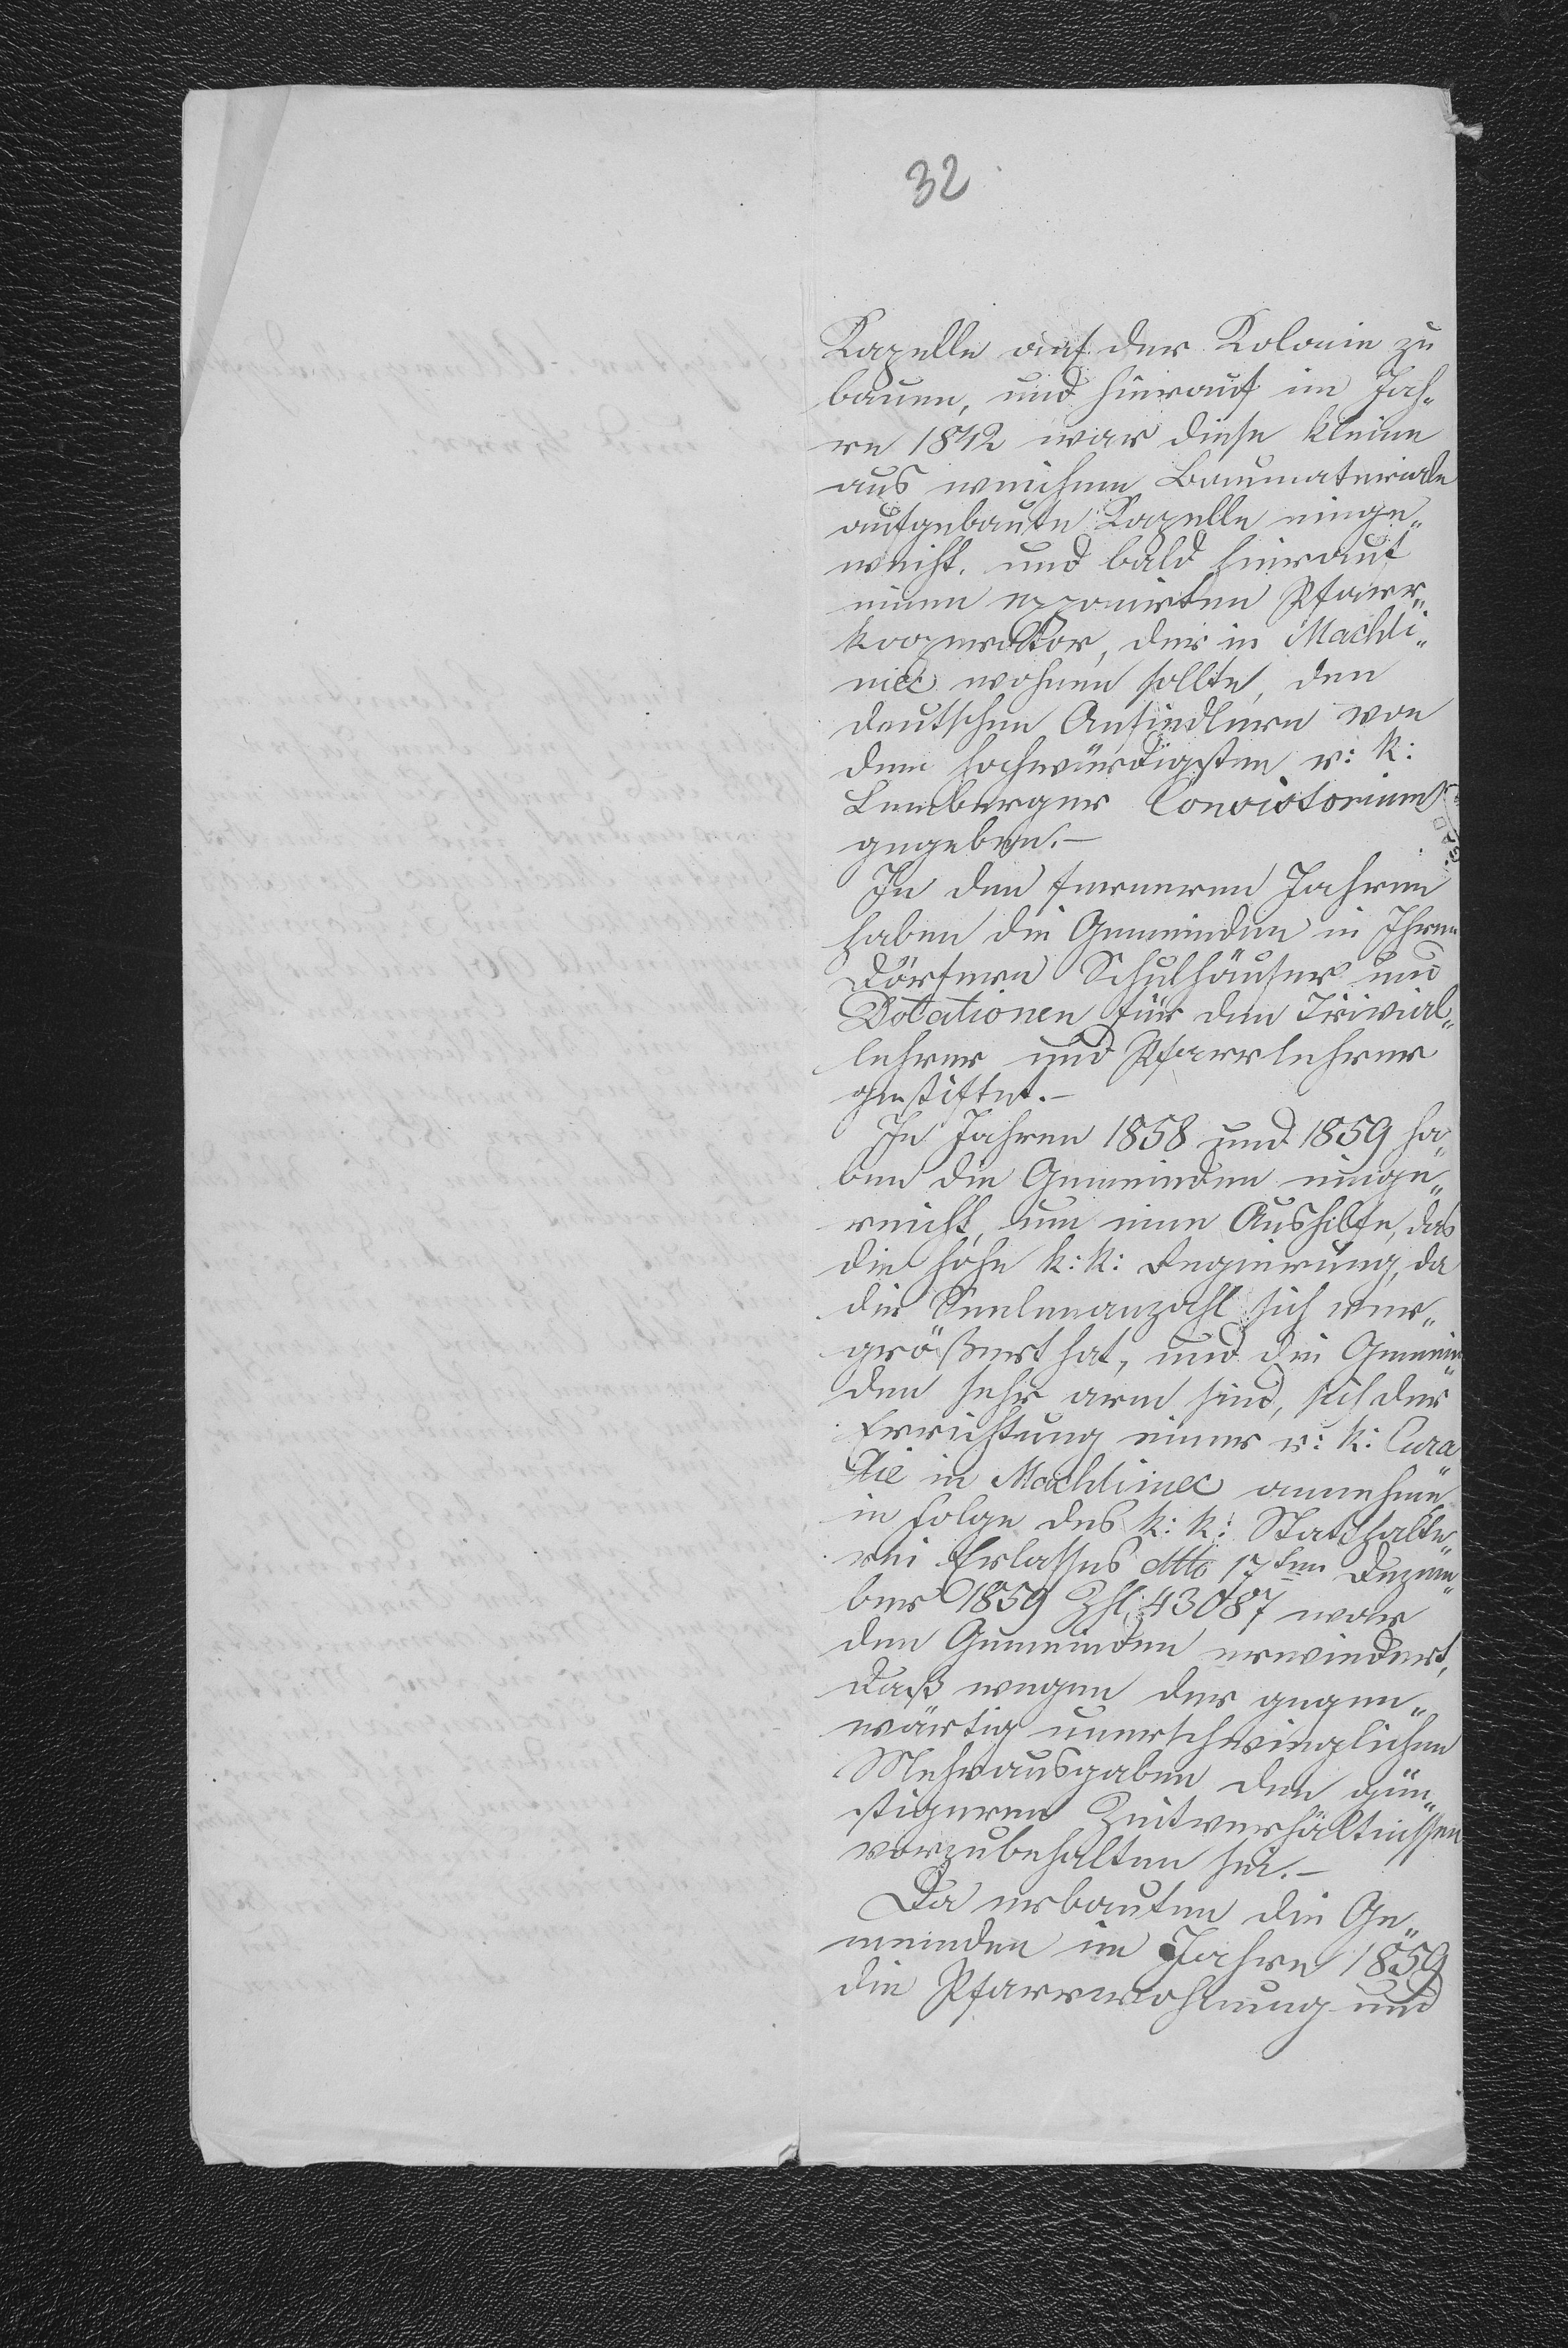 32
Kapelle auf der Kolonie zu
bauen, und hierauf im Jah„
re 1842 war diese kleine
aus weichem Baumateriale
aufgebaute Kapelle einge„
weiht, und bald hierauf
einen exponirten Pfarr„
kooperator, der in Machli„
niec wohnen sollte, den
deutschen Ansiedlern von
dem hochwürdigsten r: k:
Lemberger Consistorium
gegeben.—
In den ferneren Jahren
haben die Gemeinden in Ihren
Dörfern Schulhäuser und
Dotationen für den Trivial„
lehrer und Pfarrlehrer
gestiftet.—
In Jahren 1858 und 1859 ha„
ben die Gemeinden einge„
reicht, um eine Aushilfe, das
die hohe k: k: Regierung, da
die Seelenanzahl sich ver„
größert hat, und die Gemein„
den sehr arm sind, sich der
Errichtung einer r: k: Cura„
tie in Machliniec annehme,
in folge des k: k: Statthalte„
rei Erlasses dtto 17ten Dezem„
ber 1859 Zhl. 43087 war
den Gemeinden erwiedert,
daß wegen der gegen„
wärtig unerschwinglichen
Mehrausgaben den gün„
stigeren Zeitverhältnissen
vorzubehalten sei.—
Da erbauten die Ge„
meinden im Jahre 1859
die Pfarrwohnung und